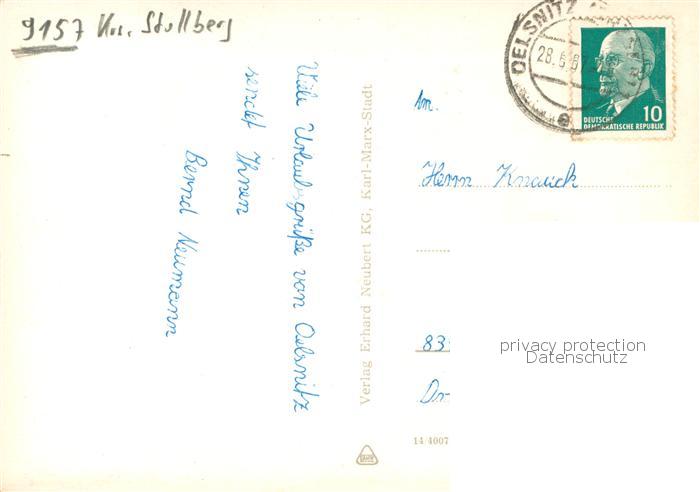 9157 Krs. Stollberg
Viele Urlaubsgrüße von Oelsnitz
sendet Ihnen
Bernd Neumann
Verlag Erhard Neubert KG, Karl-Marx-Stadt
OELSNITZ
28.6.67
DEUTSCHE
DEMOKRATISCHE REPUBLIK
10
An
Herrn Knauick
83
privacy protection
Datenschutz
14/4007